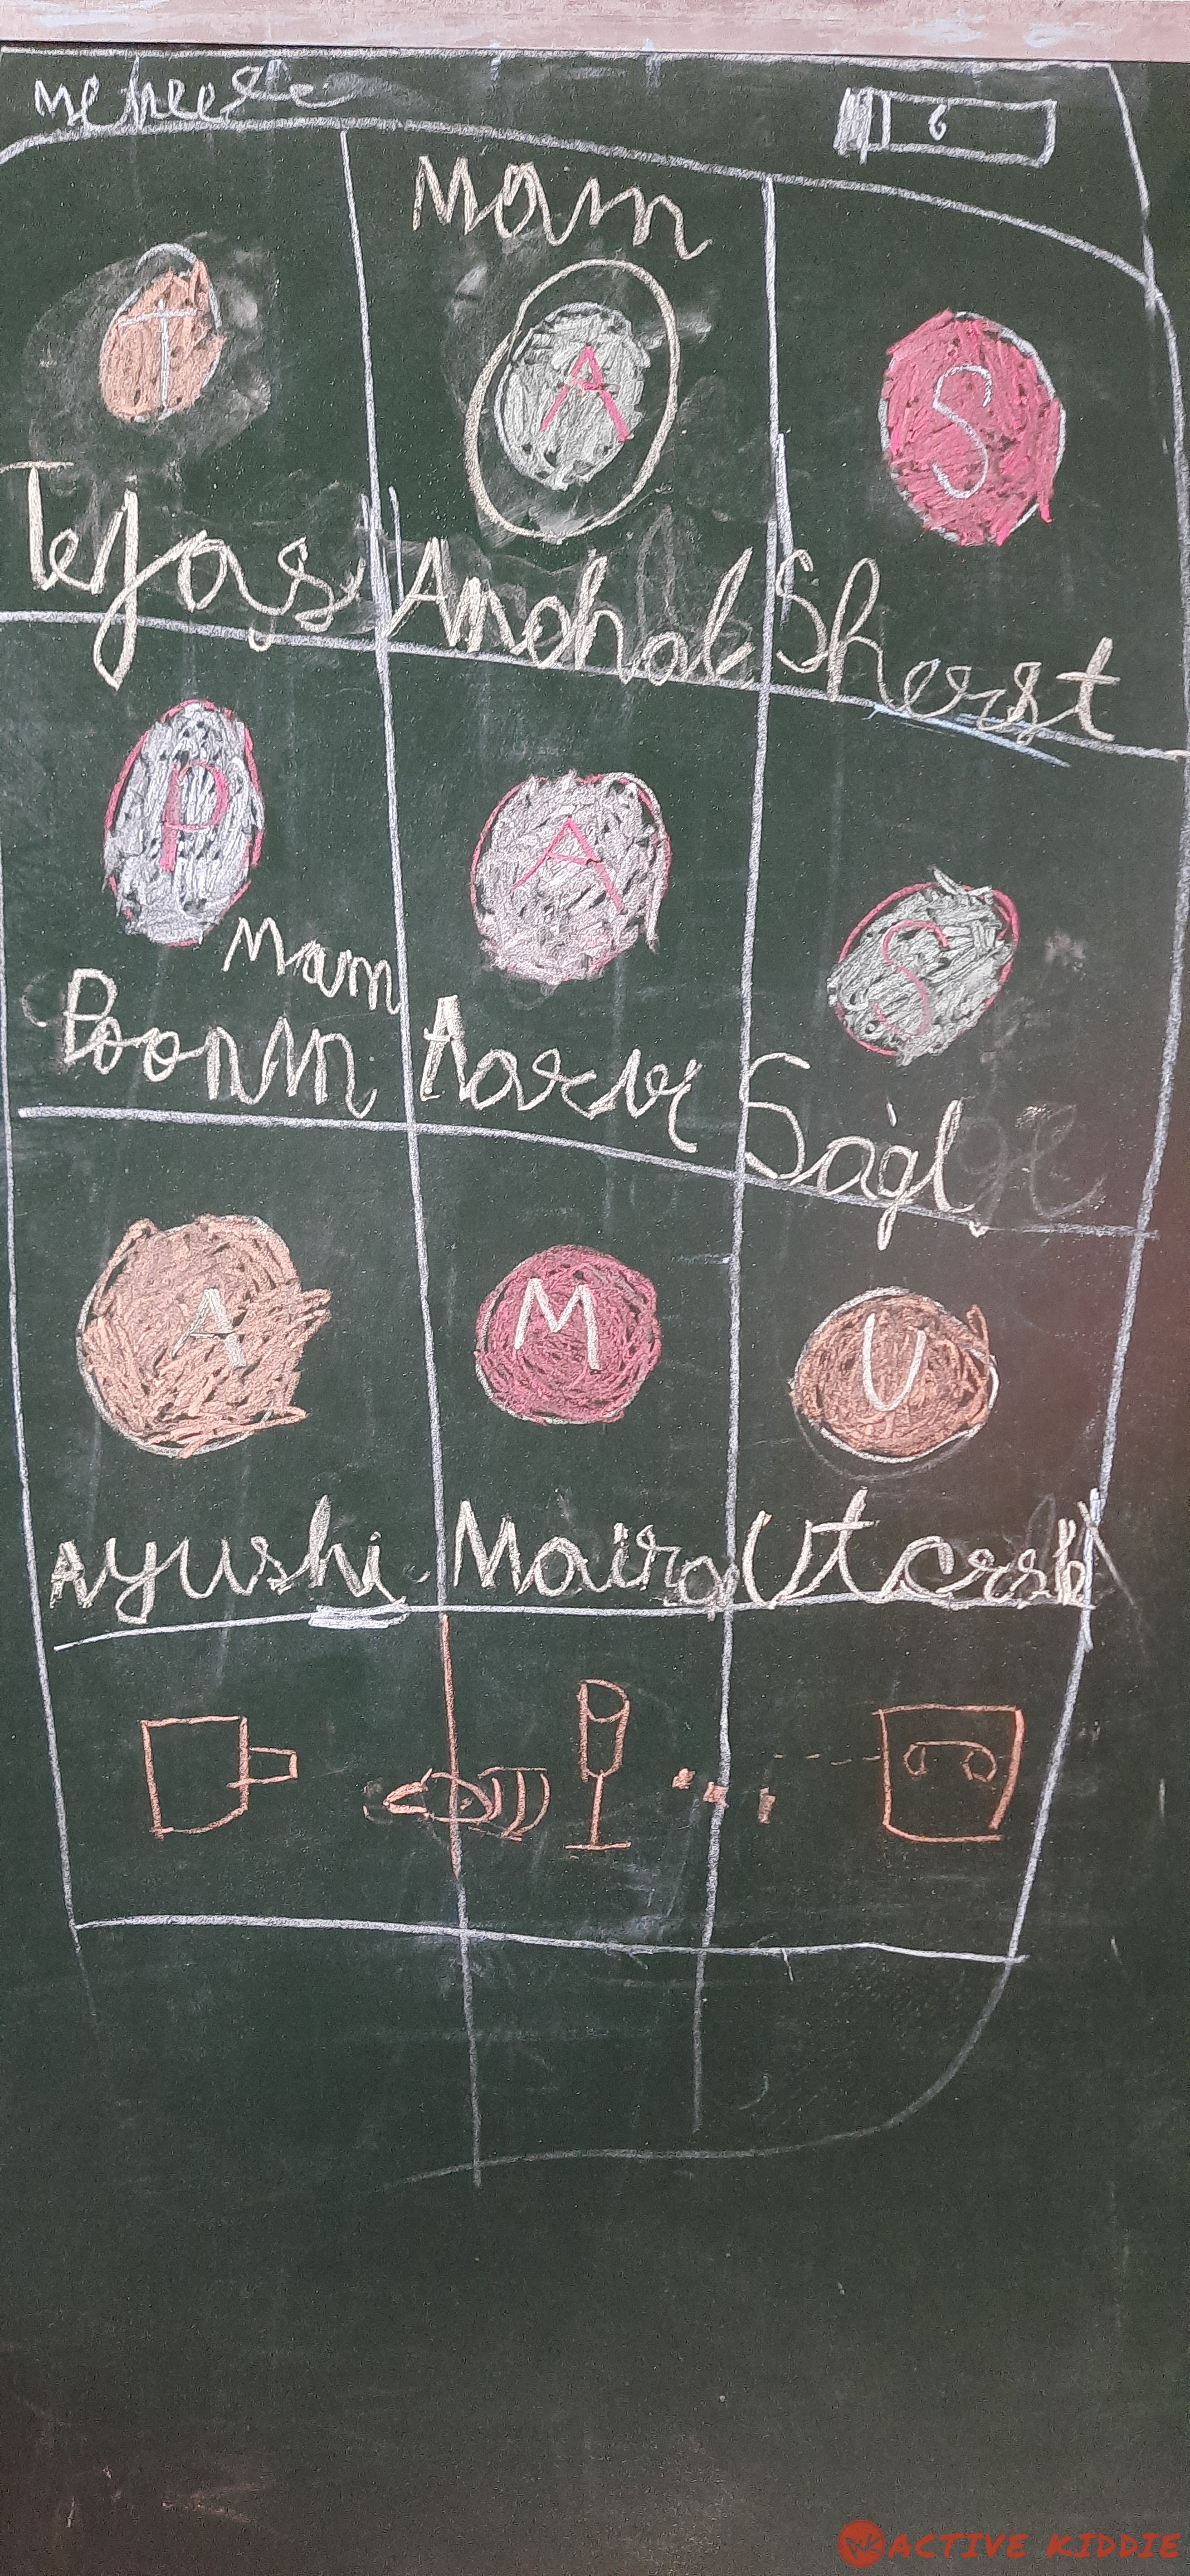 6
Mam
T A S
Tejas Anchal Sherst
P A S
Mam
Poonm Aarav
A M U
Ayushi Maira Utcrsh
ACTIVE KIDDIE